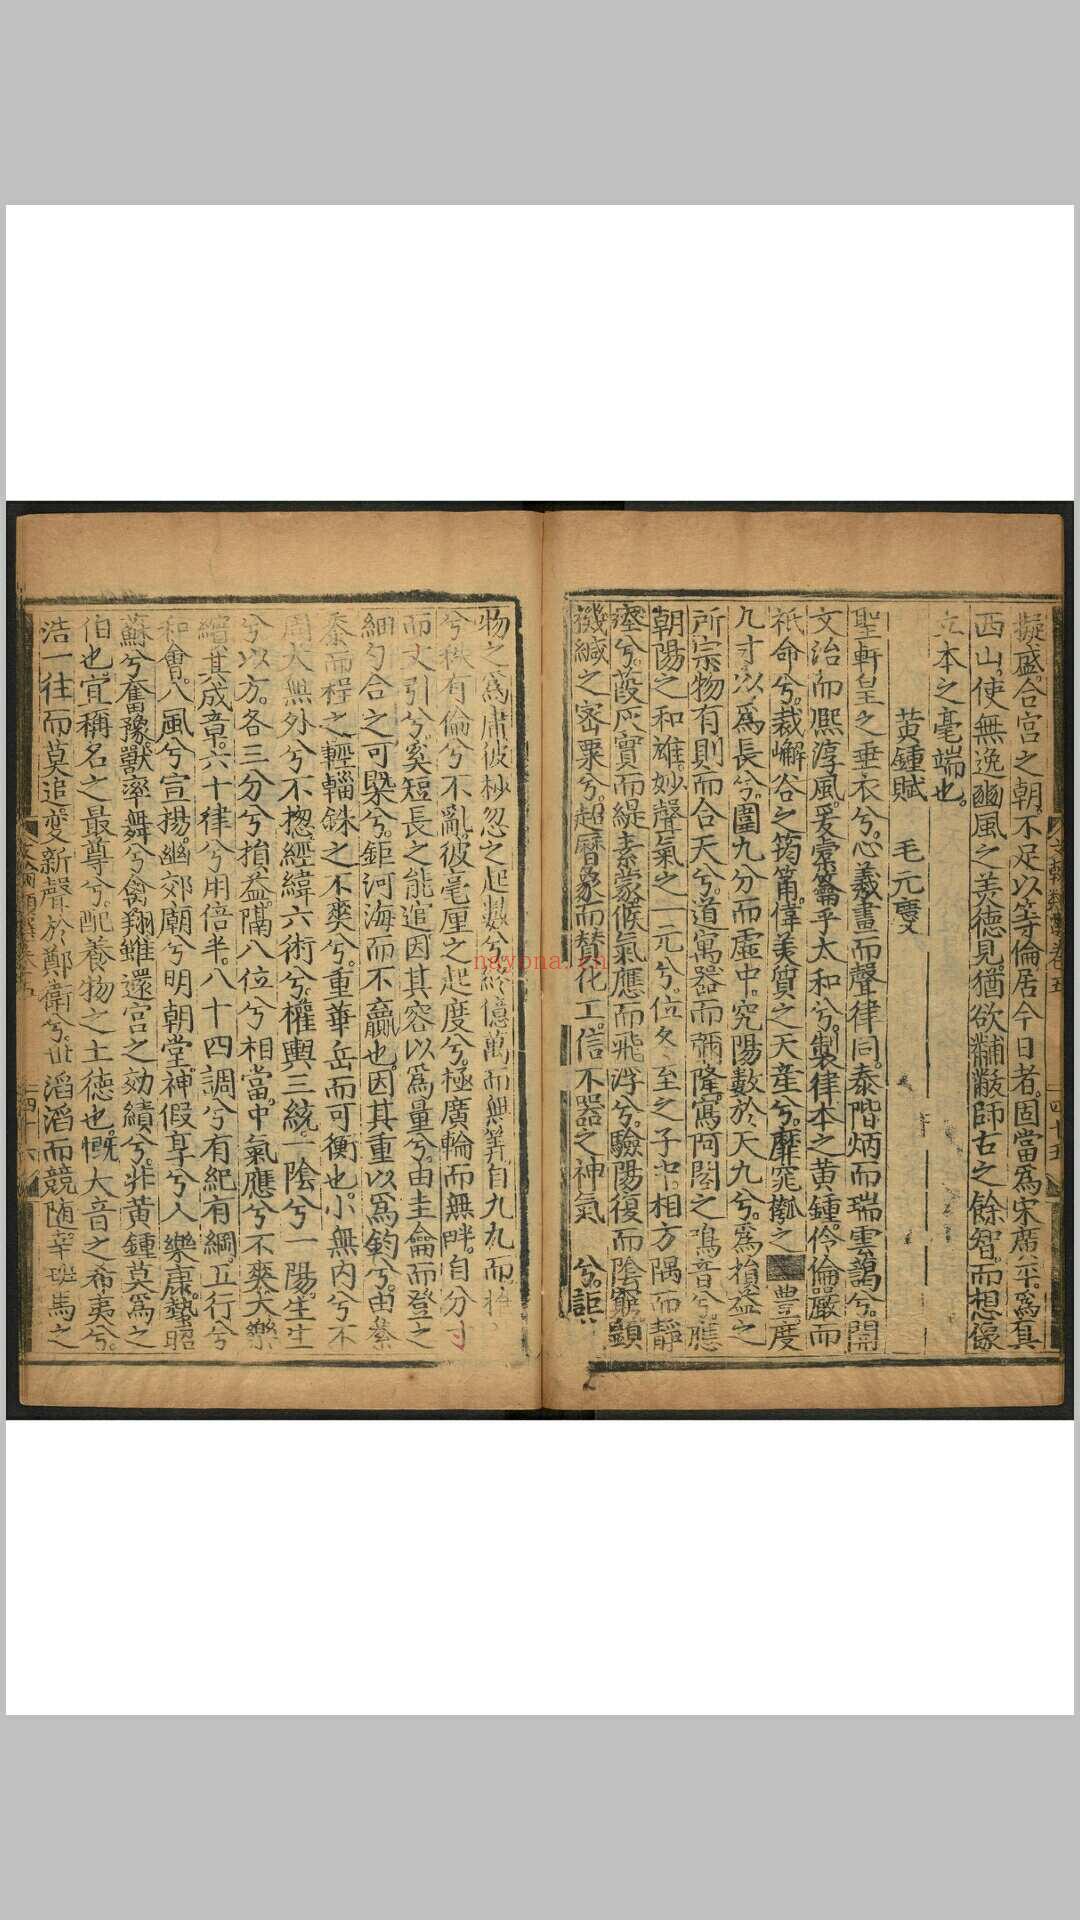 擬盛。合宮之朝。不足以等倫居今日者。固當爲宋廣平。爲真
西山。使無逸豳風之美德見。猶欲黼黻師古之餘智。而想像
立本之毫端也。
黃鍾賦 毛元慶
聖軒皇之垂衣兮。心羲畫而聲律同。泰階炳而瑞雲藹兮。開
文治而熈淳風。爰橐籥乎太和兮。製律本之黃鍾。伶倫嚴而
祇命兮。裁嶰谷之筠筩。偉美質之天産兮。靡窕㧓之 豊度
九寸以爲長兮。圍九分而虛中。究陽數於天九兮。爲損益之
所宗。物有則而合天兮。道寓器而彌隆。寫阿閣之鳴音兮。應
朝陽之和雄。妙聲氣之一元兮。位冬至之子中。相方隅而靜
瘞兮。葭灰實而緹素蒙。候氣應而飛浮兮。驗陽復而陰窮。鎖
機緘之密栗兮。超曆象而賛化工。信不器之神氣 兮。詎
物之爲庸。彼杪忽之起數兮。終億萬而無筭。自九九而推
兮。秩有倫兮不亂。彼毫厘之起度兮。極廣輪而無畔。自分寸
而丈引兮。奚短長之能逭。因其容以爲量兮。由圭龠而登之
細勺合之可槩兮。鉅河海而不贏也。因其重以爲鈞兮。由絫
黍而程之。輕錙銖之不爽兮。重華岳而可衡也。小無内兮不
周。大無外兮不揔。經緯六術兮。權輿三統。一陰兮一陽。生生
兮以方。各三分兮損益。隔八位兮相當。中氣應兮不爽。大樂
繒其成章。六十律兮用倍半。八十四調兮有紀有綱。五行兮
和會。八風兮宣揚。幽郊廟兮明朝堂。神假享兮人樂康。蟄昭
蘇兮奮豫。獸率舞兮禽翔。雖還宮之効績兮。非黃鍾莫爲之
伯也。宜稱名之最尊兮。配養物之土德也。慨大音之希夷兮。
浩一往而莫追。變新聲於鄭衛兮。世滔滔而競随。辛班馬之
文翰類選卷五
四十五
四十六
nayona.cn